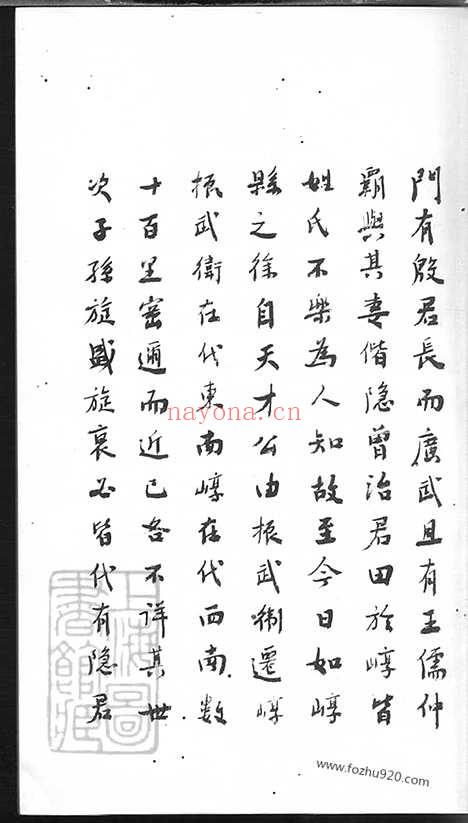 門有殷君長而廣武且有王儒仲
霸與其妻偕隐曾治君田於崞皆
姓氏不樂為人知故至今日如崞
縣之徐自天才公由振武衛遷崞
振武衛在代東南崞在代西南數
十百里密邇而近已各不詳其世
次子孫旋盛旋衰必皆代有隐君
上海圖書館藏
nayona.cn
www.fozhu920.com